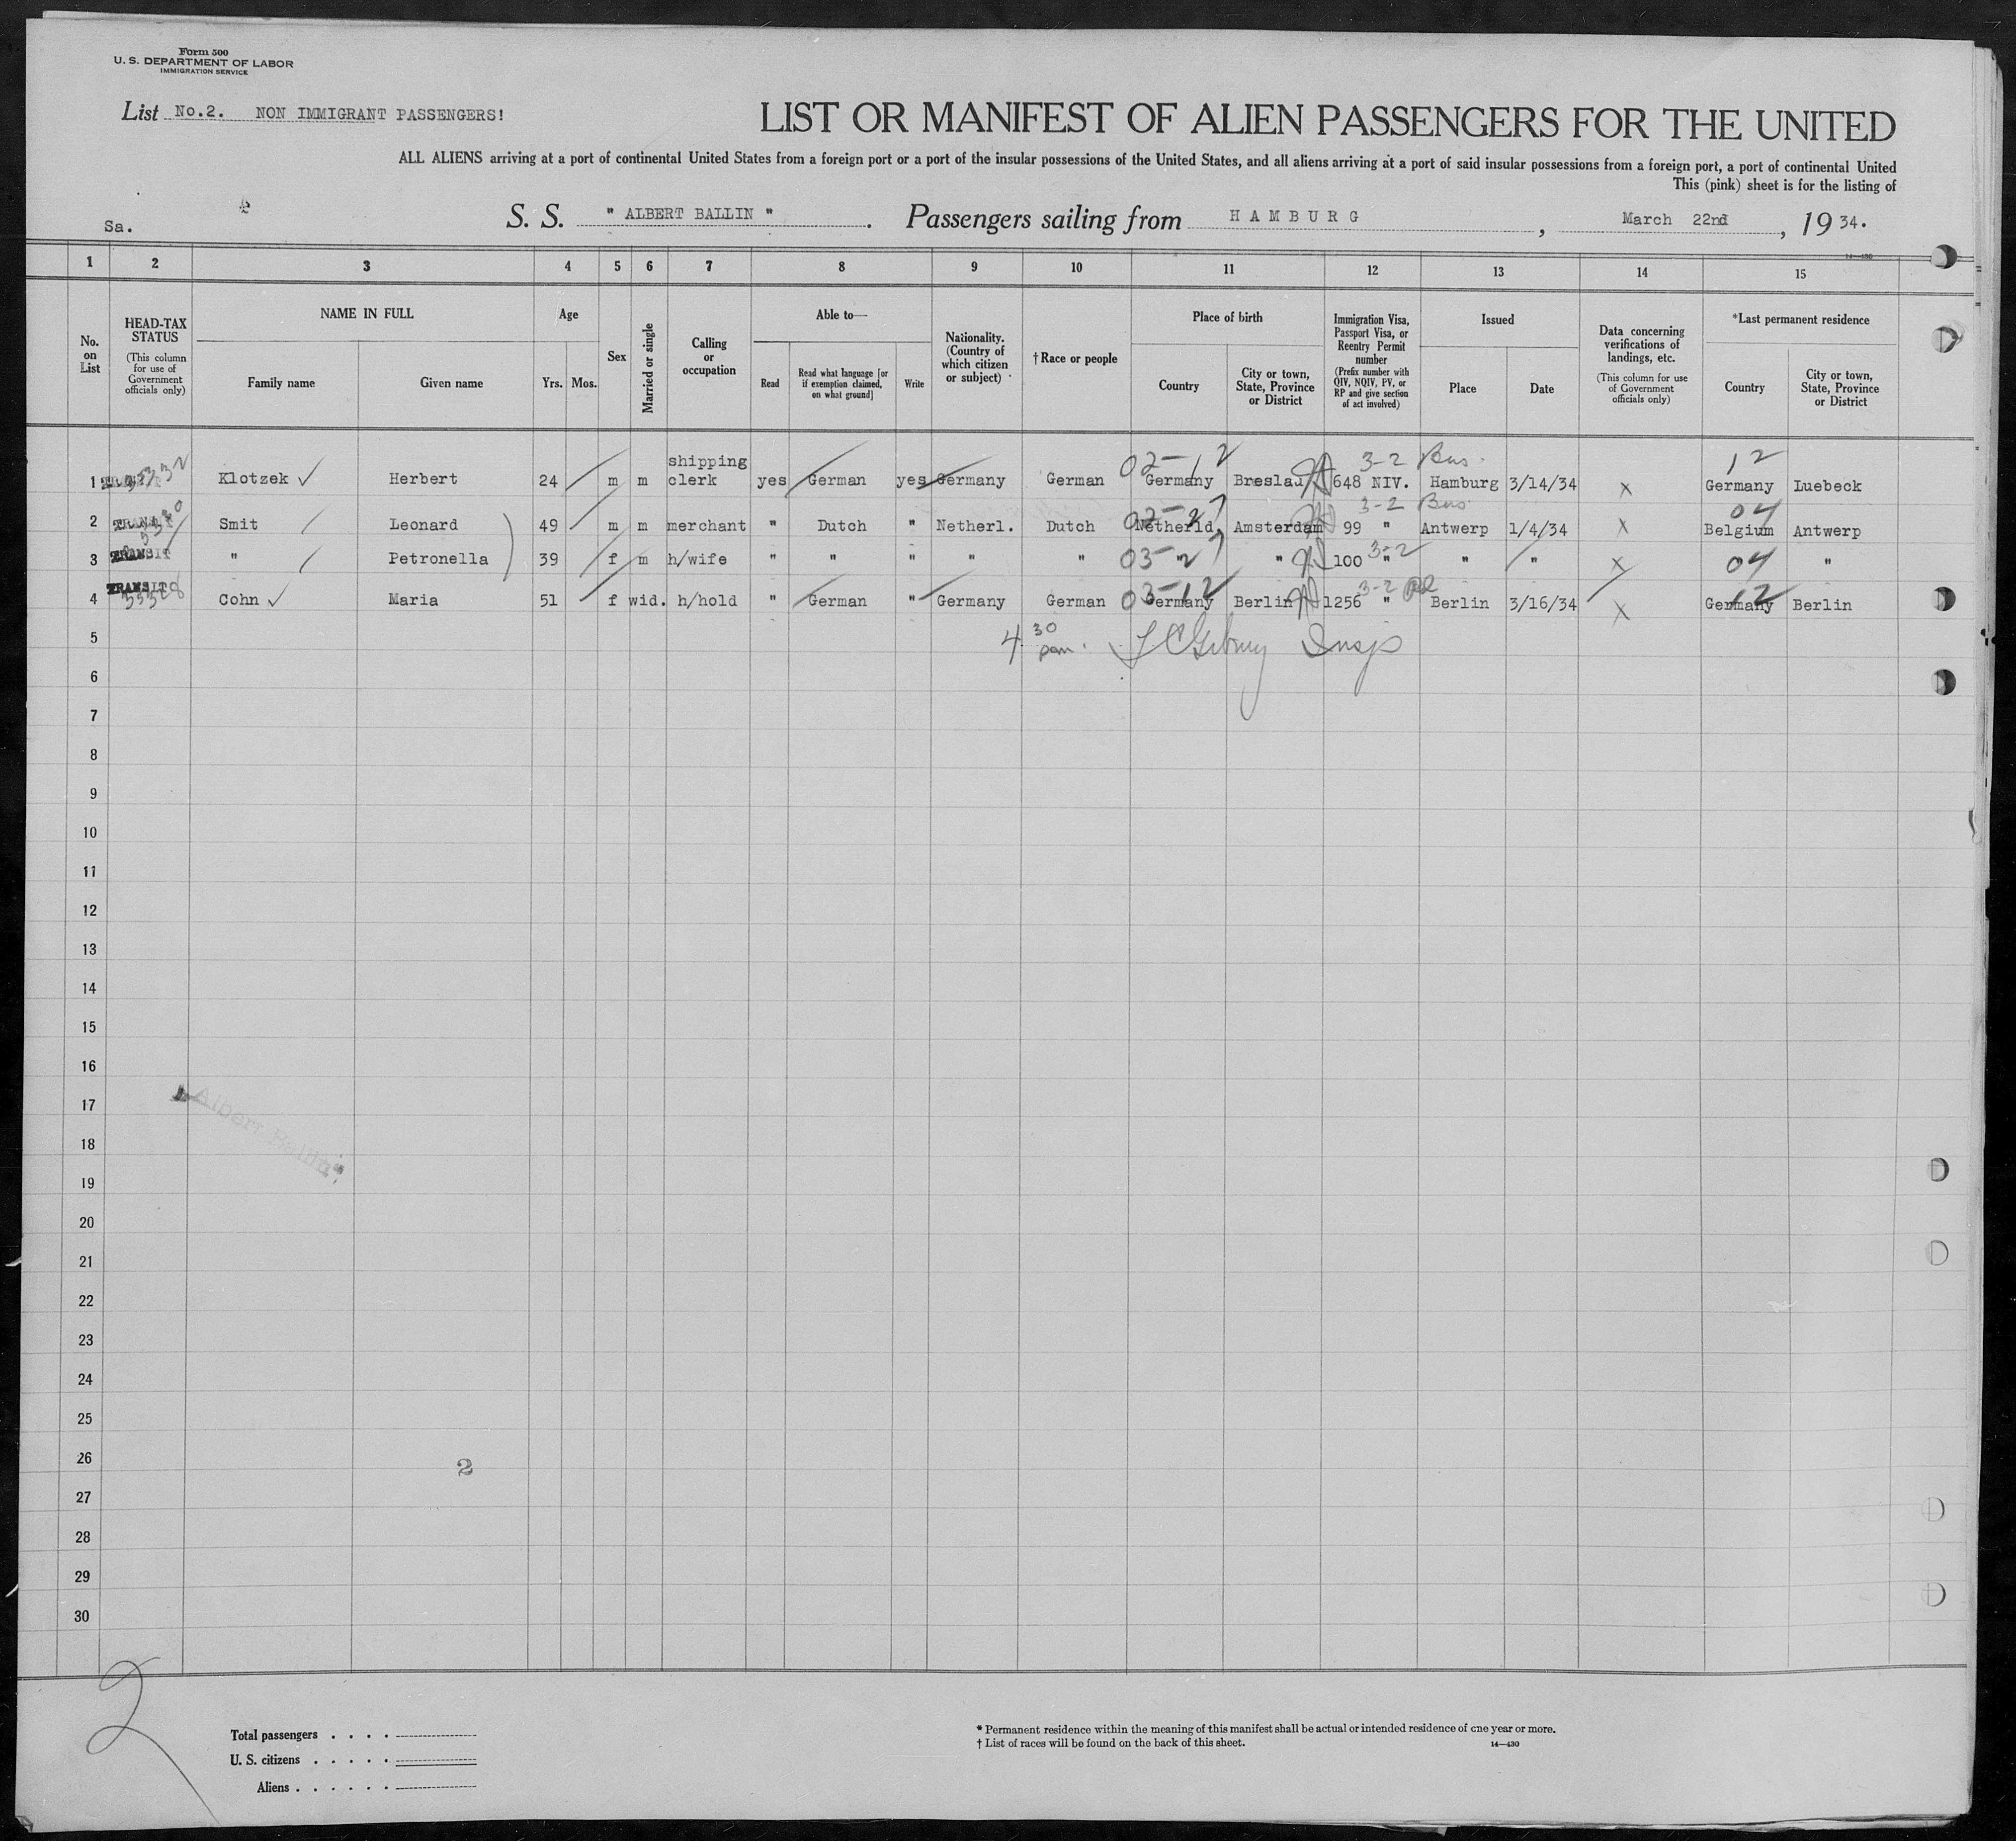 Form 500
U. S. DEPARTMENT OF LABOR
IMMIGRATION SERVICE
List No.2. NON IMMIGRANT PASSENGERS!
LIST OR MANIFEST OF ALIEN PASSENGERS FOR THE UNITED
ALL ALIENS arriving at a port of continental United States from a foreign port or a port of the insular possessions of the United States, and all aliens arriving at a port of said insular possessions from a foreign port, a port of continental United
This (pink) sheet is for the listing of
Sa.
S. S. " ALBERT BALLIN " . Passengers sailing from H A M B U R G , March 22nd , 19 34.
14—430
1 2 3 4 5 6 7 8 9 10 11 12 13 14 15
No. on List
HEAD-TAX STATUS (This column for use of Government officials only)
NAME IN FULL
Family name
Given name
Age
Yrs. Mos.
Sex
Married or single
Calling or occupation
Able to—
Read
Read what language [or if exemption claimed, on what ground]
Write
Nationality. (Country of which citizen or subject)
†Race or people
Place of birth
Country
City or town, State, Province or District
Immigration Visa, Passport Visa, or Reentry Permit number (Prefix number with QIV, NQIV, PV, or RP and give section of act involved)
Issued
Place
Date
Data concerning verifications of landings, etc. (This column for use of Government officials only)
*Last permanent residence
Country
City or town, State, Province or District
02-12 3-2 Bus. 12
1 TRANSIT Klotzek ✓ Herbert 24 m m shipping clerk yes German yes Germany German Germany Breslau 648 NIV. Hamburg 3/14/34 x Germany Luebeck
02-27 3-2 Bus 04
2 TRANSIT Smit Leonard 49 m m merchant " Dutch " Netherl. Dutch Netherld. Amsterdam 99 " Antwerp 1/4/34 x Belgium Antwerp
03-27 3-2 04
3 TRANSIT " Petronella 39 f m h/wife " " " " " " " 100 " " " x "
03-12 3-2 12
4 TRANSIT Cohn ✓ Maria 51 f wid. h/hold " German " Germany German Germany Berlin 1256 " Berlin 3/16/34 x Germany Berlin
5 4 30 pm. Insp
6
7
8
9
10
11
12
13
14
15
16
17
Albert Ballin
18
19
20
21
22
23
24
25
26
2
27
28
29
30
2
Total passengers . . . .
U. S. citizens . . . . .
Aliens . . . . . .
* Permanent residence within the meaning of this manifest shall be actual or intended residence of one year or more.
† List of races will be found on the back of this sheet.
14—430